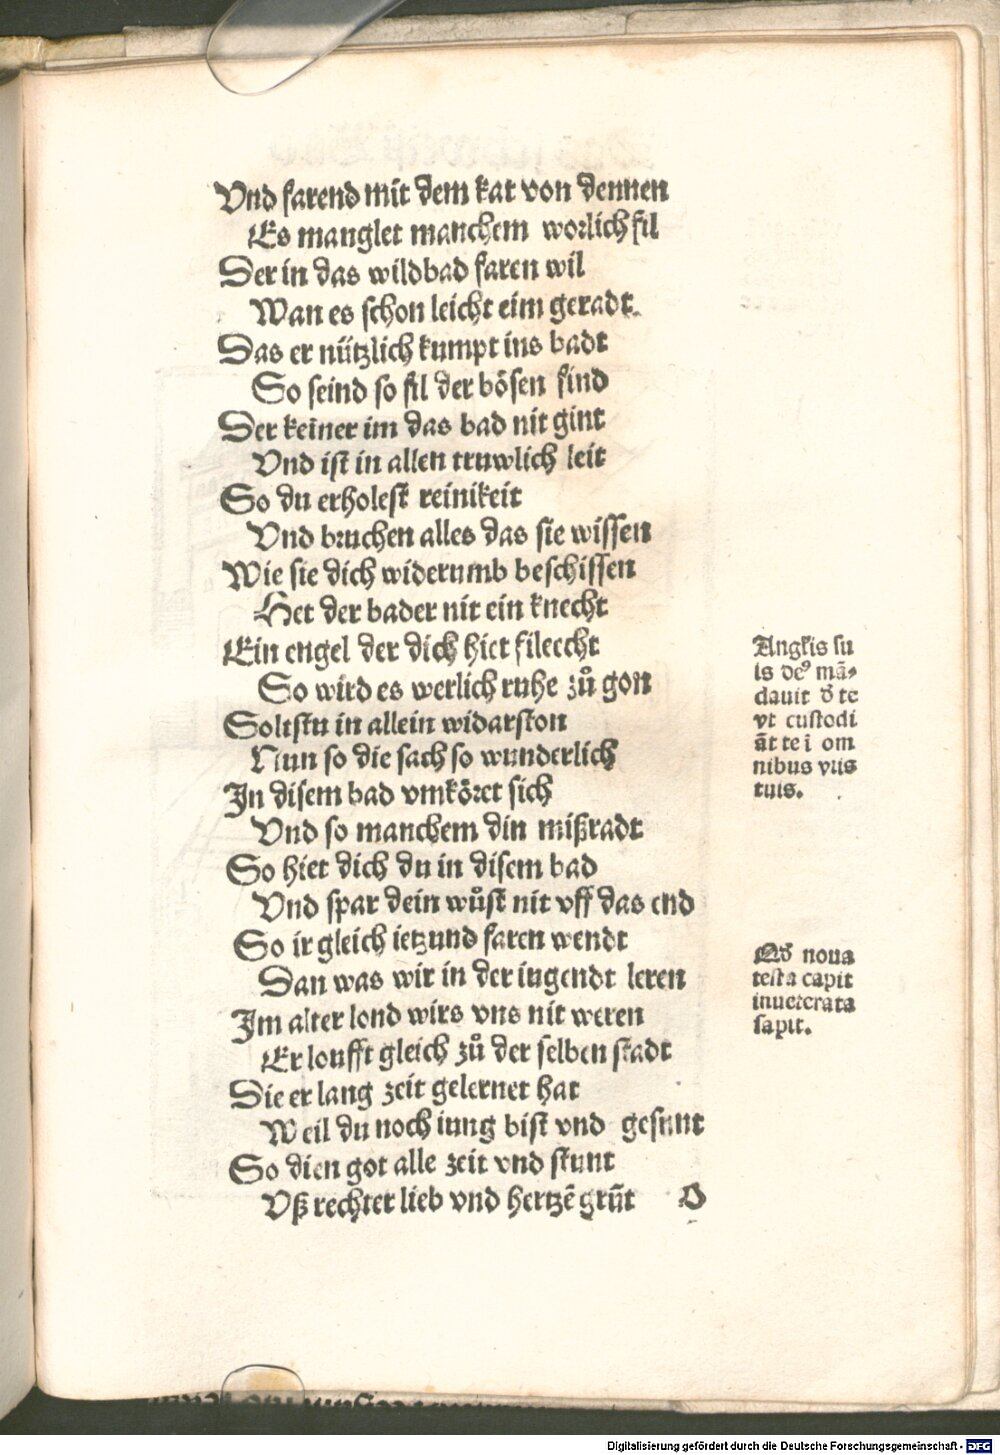 Vnd farend mit dem kat von dennen
Es manglet manchem worlich fil
Der in das wildbad faren wil
Wan es schon leicht eim geradt
Das er nützlich kumpt ins badt
So seind so fil der bösen find
Der keiner im das bad nit gint
Vnd ist in allen truwlich leit
So du erholest reinikeit
Vnd bruchen alles das sie wissen
Wie sie dich widerumb beschissen
Het der bader nit ein knecht
Ein engel der dich hiet fileccht
So wird es werlich ruhe zů gon
Soltstu in allein widarston
Nun so die sach so wunderlich
In disem bad vmköret sich
Vnd so manchem din mißradt
So hiet dich du in disem bad
Vnd spar dein wůst nit vff das end
So ir gleich ietzund faren wendt
Dan was wir in der iugendt leren
Im alter lond wirs vns nit weren
Er loufft gleich zů der selben stadt
Die er lang zeit gelernet hat
Weil du noch iung bist vnd gesunt
So dien got alle zeit vnd stunt
Vß rechter lieb vnd hertzē grūt D
Angłis su
is deꝰ mā-
dauit ð te
vt custodi
āt te ī om
nibus viis
tuis.
Qð noua
testa capit
inueterata
sapit.
Digitalisierung gefördert durch die Deutsche Forschungsgemeinschaft - DFG